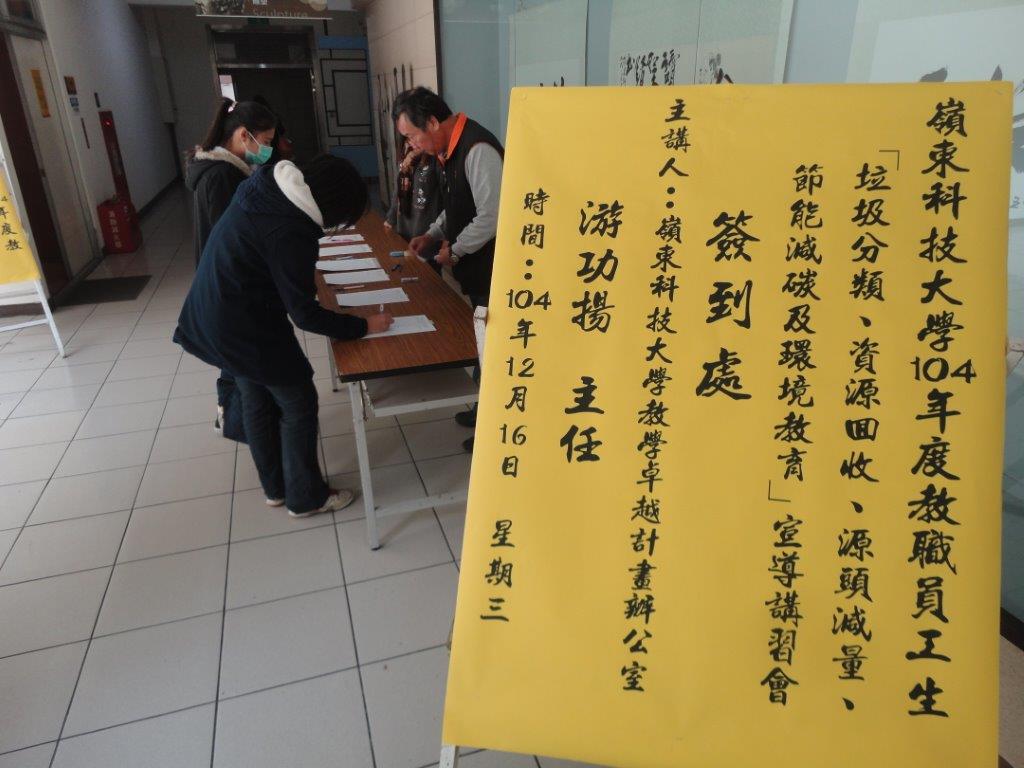 嶺東科技大學104年度教職員工生
「垃圾分類、資源回收、源頭減量、
節能減碳及環境教育」宣導講習會
簽到處
主講人：嶺東科技大學教學卓越計畫辦公室
游功揚 主任
時間：104年12月16日 星期三
Sculpture
年度教